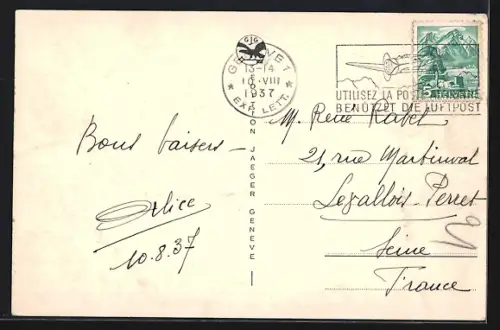 GENÈVE 1
13-14
VIII
1937
EXP. LETT.
UTILISEZ LA POSTE AÉRIENNE
BENÜTZET DIE LUFTPOST
5
Bons baisers –
Alice
10.8.37
ION JAEGER GENEVE
M. René Rabel
21, rue Martinval
Levallois-Perret
Seine
France